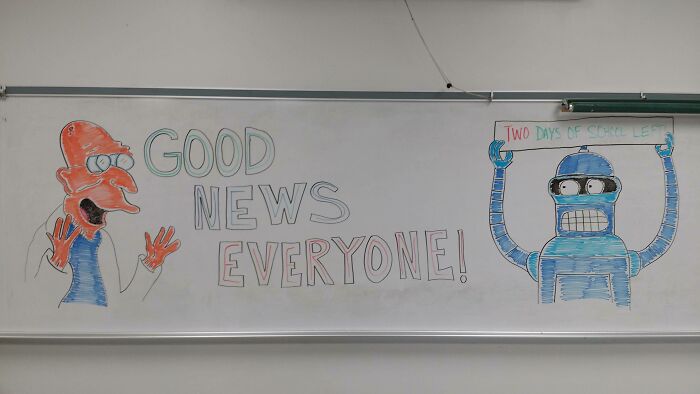 GOOD
NEWS
EVERYONE!
TWO DAYS OF SCHOOL LEFT